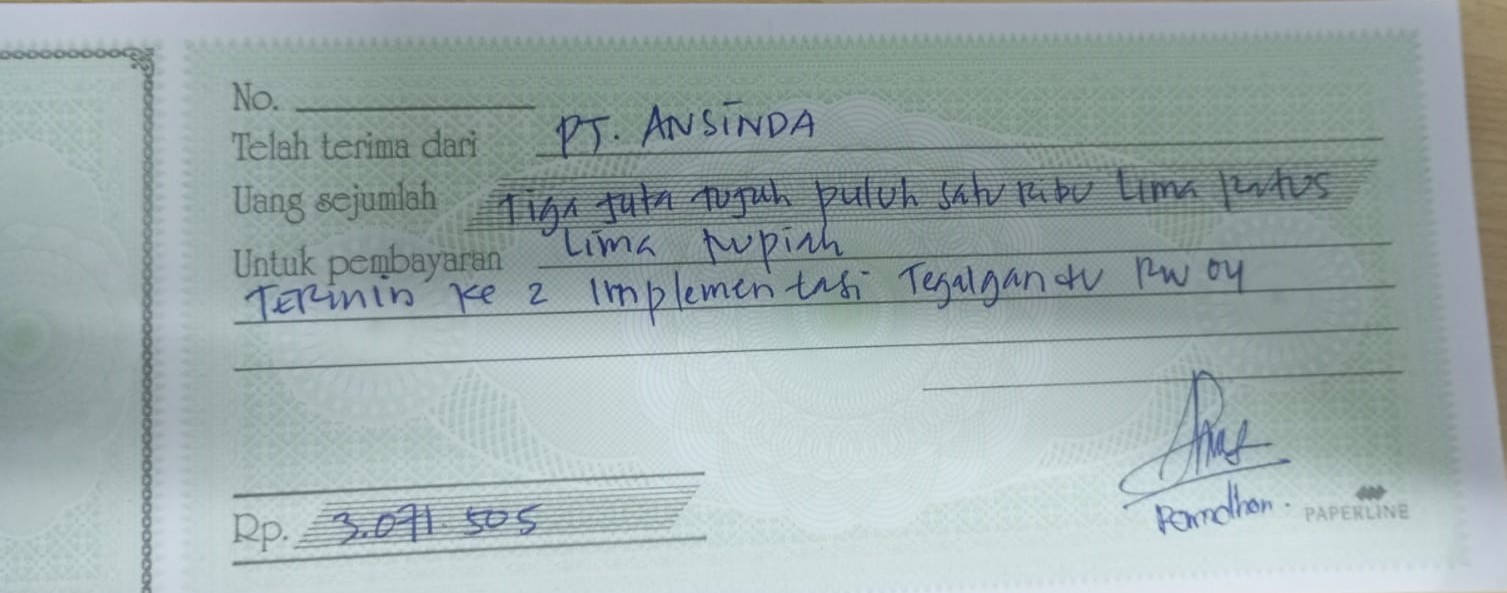 No.
Telah terima dari PT. ANSINDA
Uang sejumlah Tiga juta tujuh puluh satu ribu lima ratus
lima rupiah
Untuk pembayaran
TERMIN ke 2 Implementasi Tegalgandu RW 04
Rp. 3.071.505
Ramdhon.
PAPERLINE